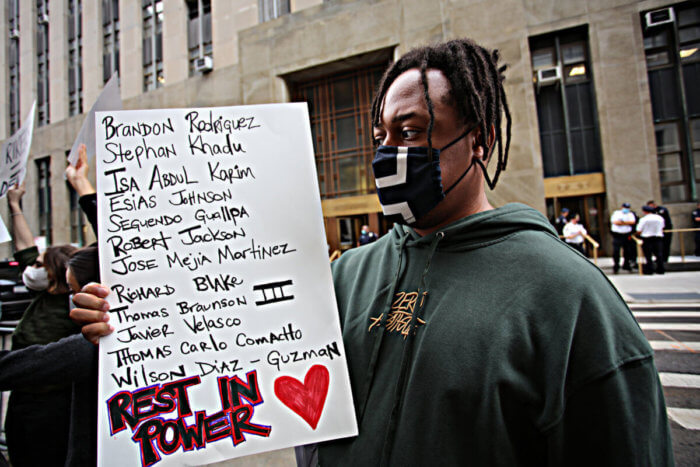 Brandon Rodriguez
Stephan Khadu
Isa Abdul Karim
Esias Johnson
Seguendo Guallpa
Robert Jackson
Jose Mejia Martinez
Richard Blake
Thomas Braunson III
Javier Velasco
Thomas Carlo Comacho
Wilson Diaz-Guzman
REST IN
POWER